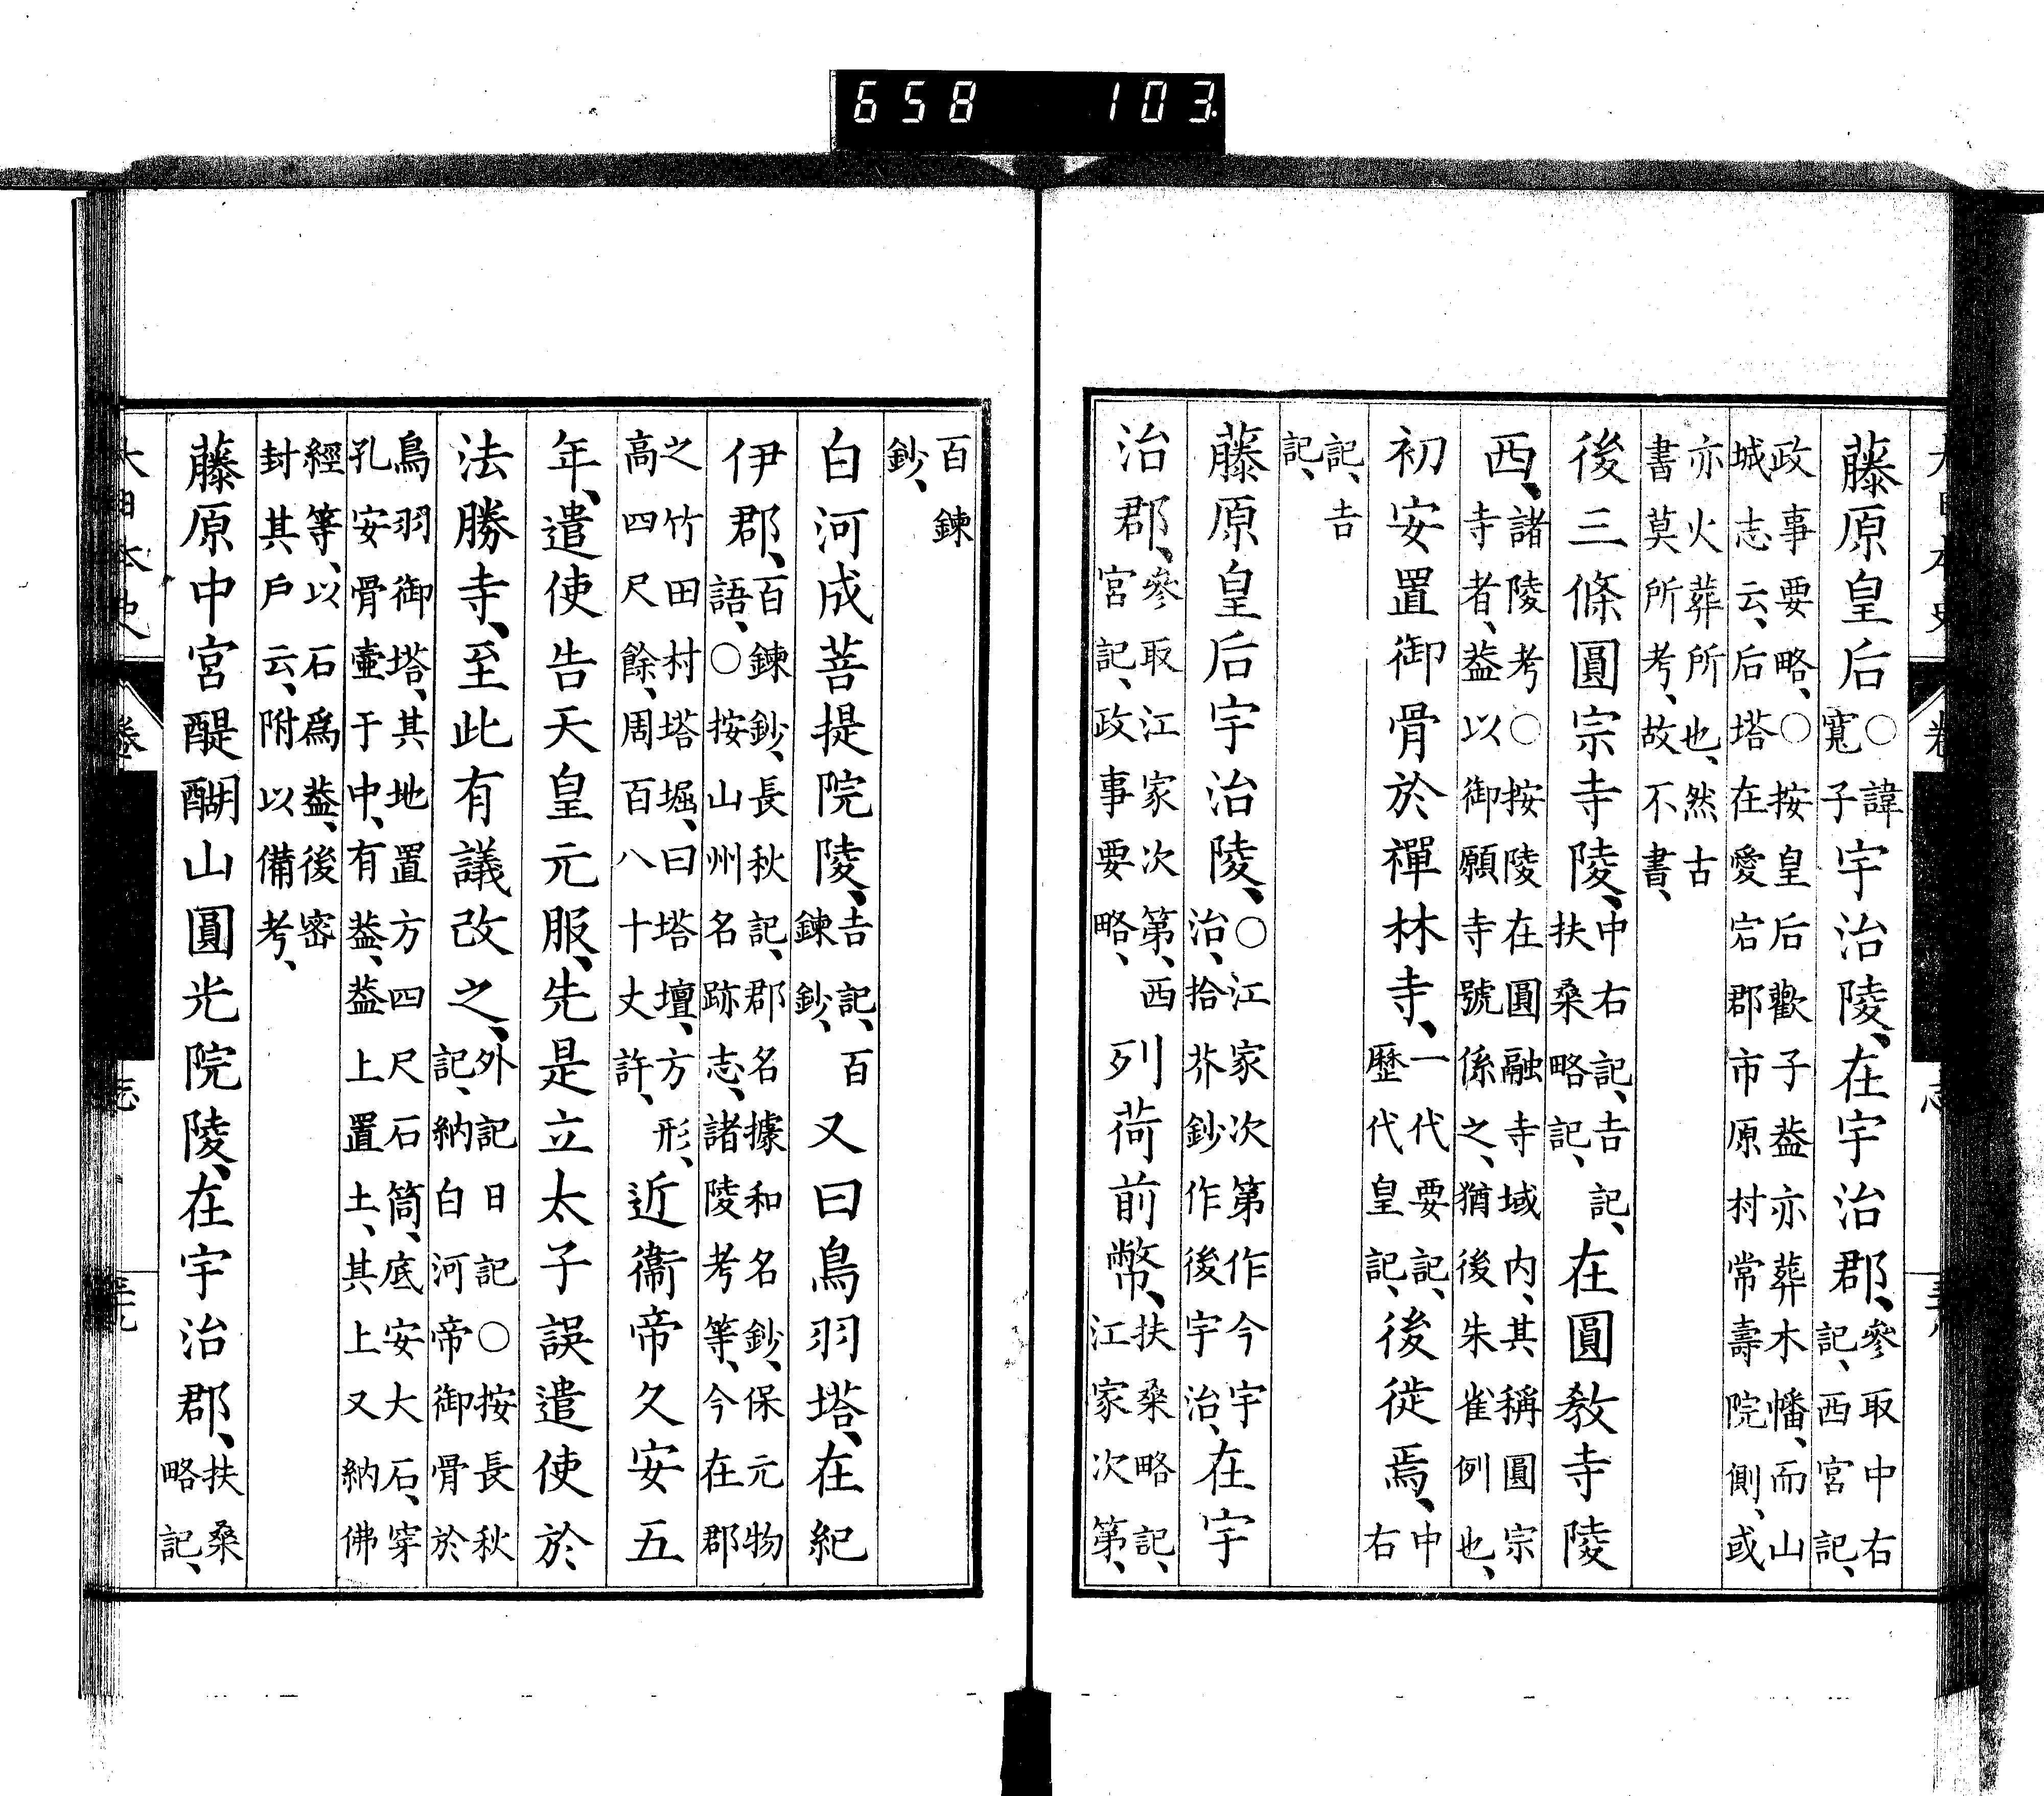 658 103
藤原皇后○諱寬子宇治陵、在宇治郡、參取中右記、西宮記、
政事要略、○按皇后歡子葢亦葬木幡、而山
城志云、后塔在愛宕郡市原村常壽院側、或
亦火葬所也、然古
書莫所考、故不書、
後三條圓宗寺陵、中右記、吉記、扶桑略記、在圓敎寺陵
西、諸陵考○按陵在圓融寺域内、其稱圓宗
寺者、葢以御願寺號係之、猶後朱雀例也、
初安置御骨於禪林寺、一代要記、歷代皇記、後徙焉、中右
記、吉
記、
藤原皇后宇治陵、○江家次第作今宇治、拾芥鈔作後宇治、在宇
治郡、參取江家次第、西宮記、政事要略、列荷前幣、扶桑略記、江家次第、
百鍊
鈔、
白河成菩提院陵、吉記、百鍊鈔、又曰鳥羽塔、在紀
伊郡、百鍊鈔、長秋記、郡名據和名鈔、保元物
語、○按山州名跡志、諸陵考等、今在郡
之竹田村塔堀、曰塔壇、方形、
高四尺餘、周百八十丈許、近衞帝久安五
年、遣使告天皇元服、先是立太子誤遣使於
法勝寺、至此有議改之、外記日記○按長秋
記、納白河帝御骨於
鳥羽御塔、其地置方四尺石筒、底安大石、穿
孔安骨壷于中、有葢、葢上置土、其上又納佛
經等、以石爲葢、後密
封其戶云、附以備考、
藤原中宮醍醐山圓光院陵、在宇治郡、扶桑略記、